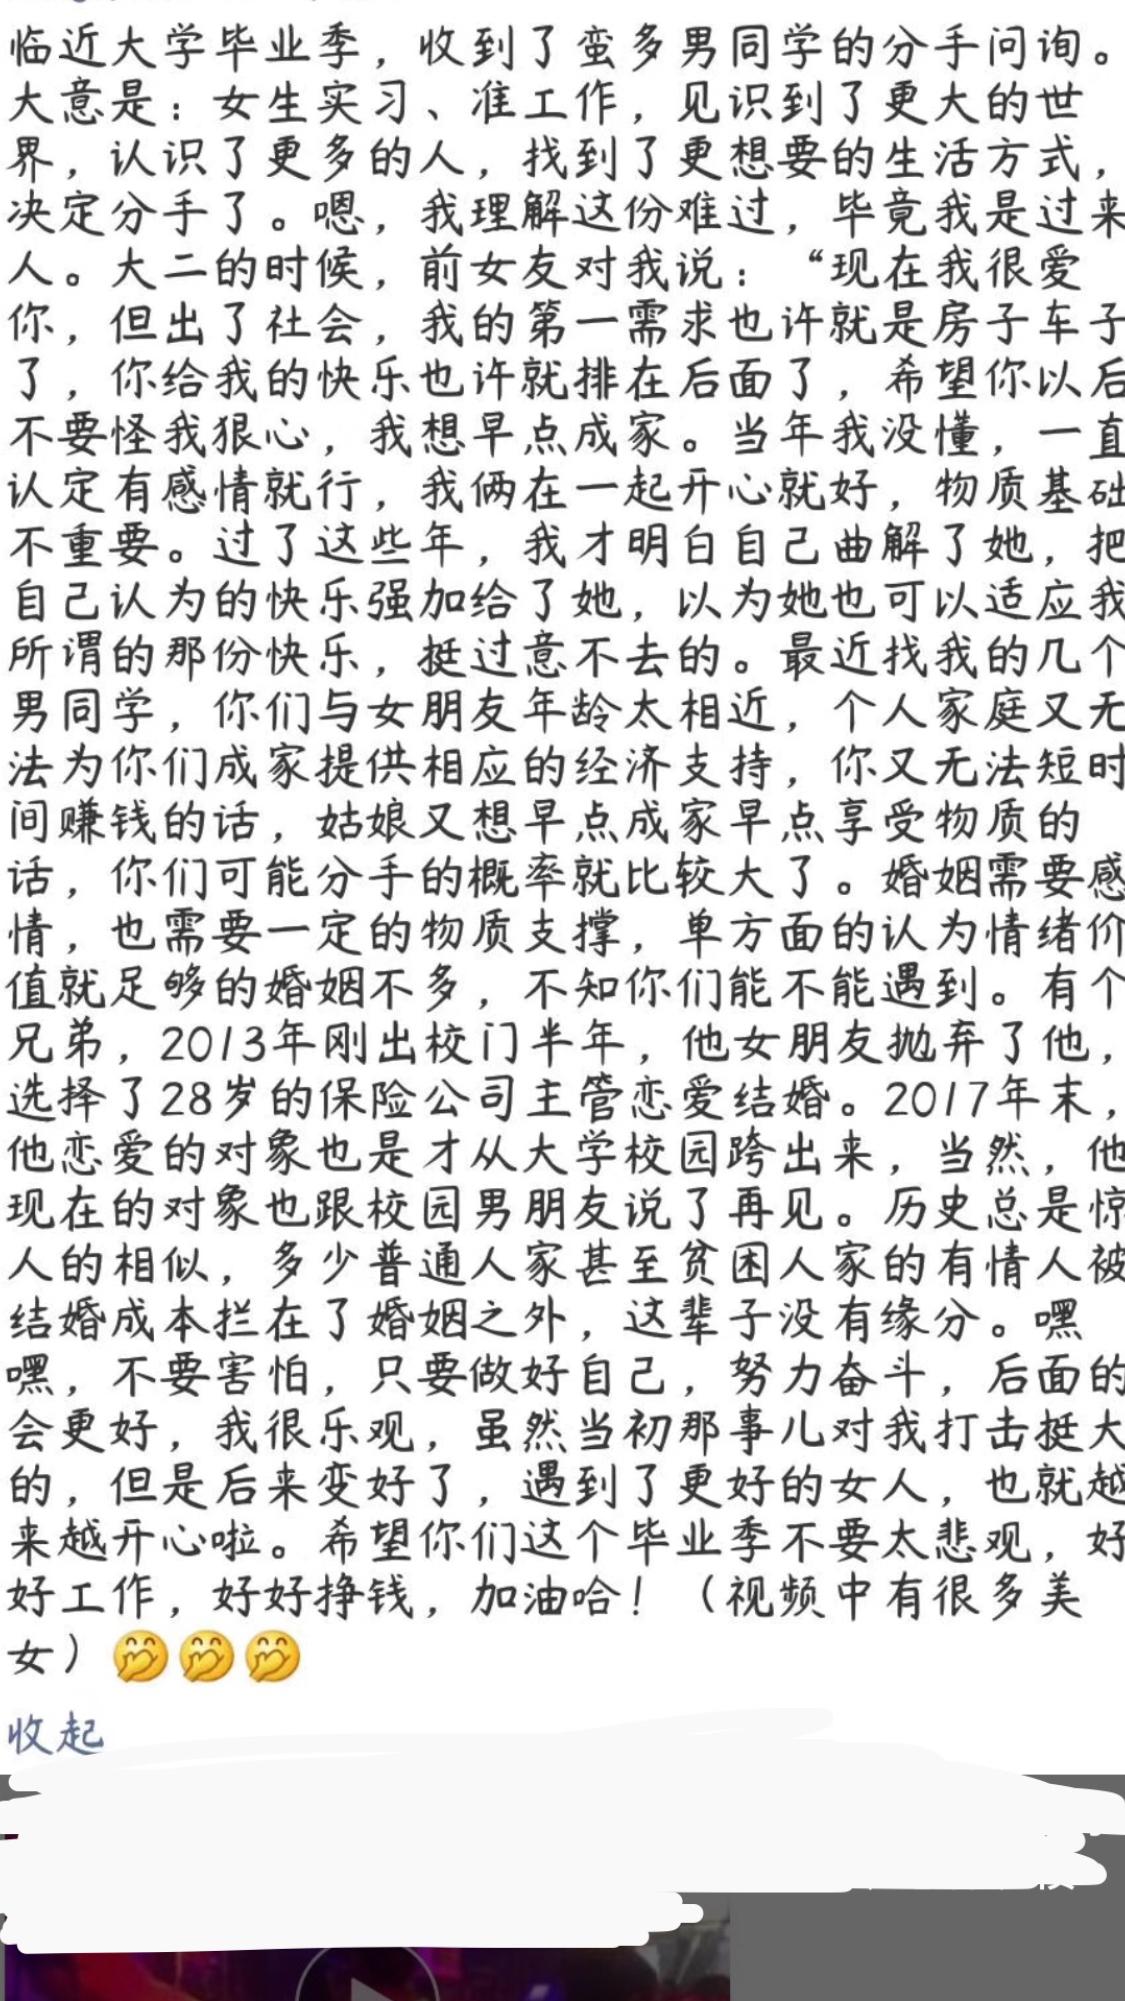 临近大学毕业季，收到了蛮多男同学的分手问询。
大意是：女生实习、准工作，见识到了更大的世
界，认识了更多的人，找到了更想要的生活方式，
决定分手了。嗯，我理解这份难过，毕竟我是过来
人。大二的时候，前女友对我说：“现在我很爱
你，但出了社会，我的第一需求也许就是房子车子
了，你给我的快乐也许就排在后面了，希望你以后
不要怪我狠心，我想早点成家。当年我没懂，一直
认定有感情就行，我俩在一起开心就好，物质基础
不重要。过了这些年，我才明白自己曲解了她，把
自己认为的快乐强加给了她，以为她也可以适应我
所谓的那份快乐，挺过意不去的。最近找我的几个
男同学，你们与女朋友年龄太相近，个人家庭又无
法为你们成家提供相应的经济支持，你又无法短时
间赚钱的话，姑娘又想早点成家早点享受物质的
话，你们可能分手的概率就比较大了。婚姻需要感
情，也需要一定的物质支撑，单方面的认为情绪价
值就足够的婚姻不多，不知你们能不能遇到。有个
兄弟，2013年刚出校门半年，他女朋友抛弃了他，
选择了28岁的保险公司主管恋爱结婚。2017年末，
他恋爱的对象也是才从大学校园跨出来，当然，他
现在的对象也跟校园男朋友说了再见。历史总是惊
人的相似，多少普通人家甚至贫困人家的有情人被
结婚成本拦在了婚姻之外，这辈子没有缘分。嘿
嘿，不要害怕，只要做好自己，努力奋斗，后面的
会更好，我很乐观，虽然当初那事儿对我打击挺大
的，但是后来变好了，遇到了更好的女人，也就越
来越开心啦。希望你们这个毕业季不要太悲观，好
好工作，好好挣钱，加油哈！（视频中有很多美
女）🤭🤭🤭
收起